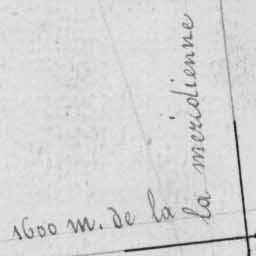 1600 m. de la
la meridienne